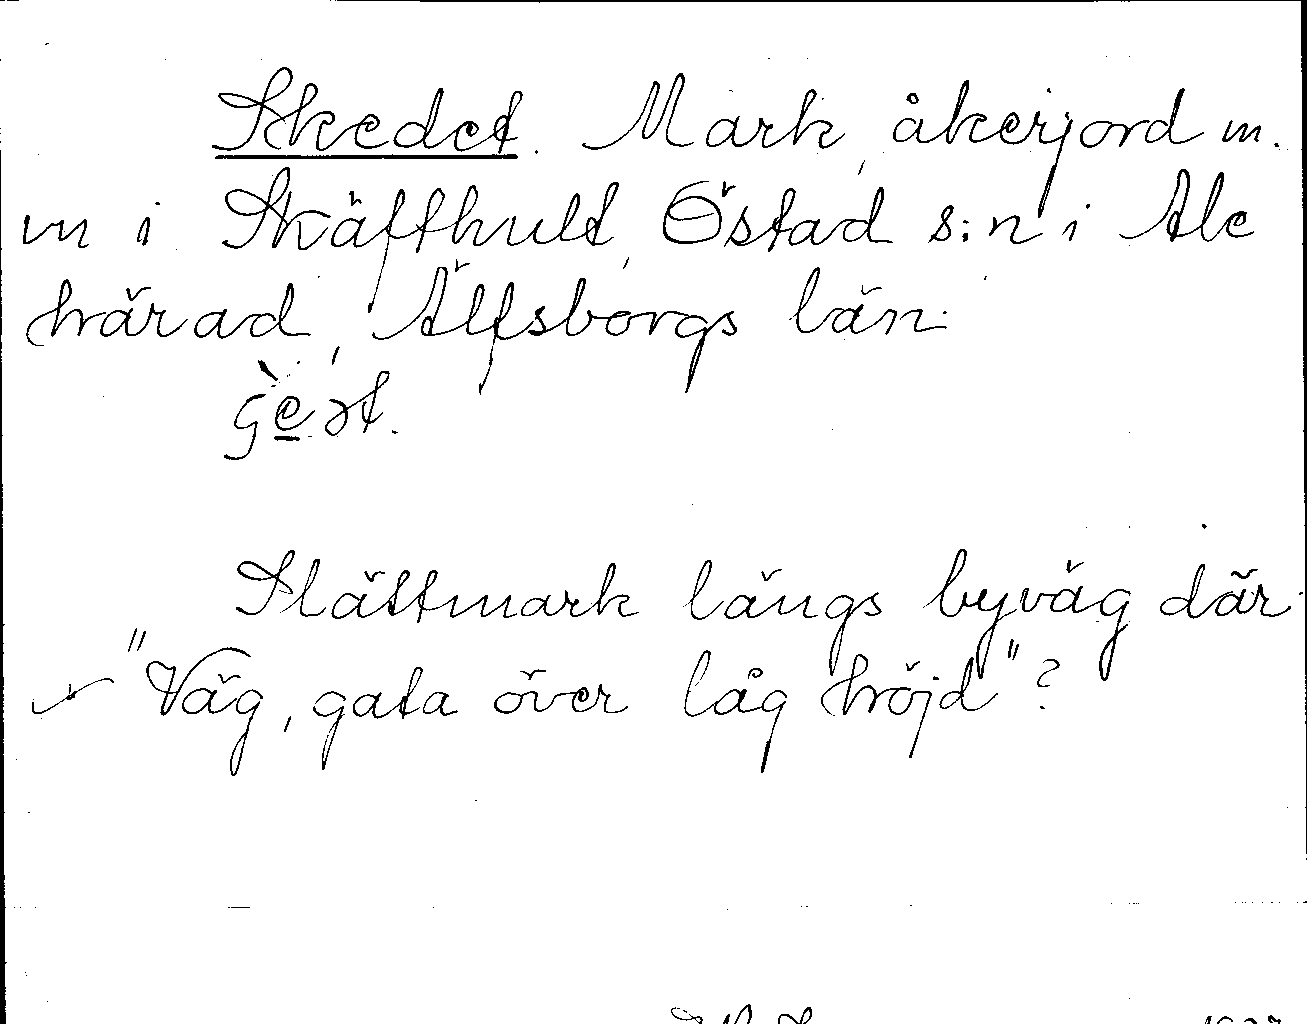 Skedet. Mark, åkerjord m.
m i Skäfthult, Östad s:n i Ale
härad, Älfsborgs län.
Slättmark längs byväg där.
"Väg, gata över låg höjd"?